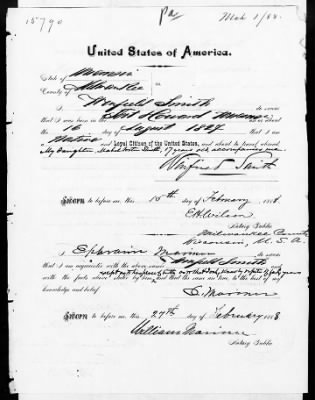 15790
Pa
Mch 1/88.
United States of America.
State of Wisconsin
County of Milwaukee
I, Winfield Smith do swear
that I was born in the Fort Howard Wisconsin on or about
the 16 day of August 1827 that I am
a Native and Loyal Citizen of the United States, and about to travel abroad
My daughter 17 years old accompanies me.
Winfield Smith
Sworn to before me this 15th day of February 1888
E. H. Wilson
Notary Public
Milwaukee County
Wisconsin, U.S.A.
I, Ephraim Mariner do swear
that I am acquainted with the above named Winfield Smith and
with the facts above stated by him, and that the same are true, to the best of my
knowledge and belief.
E. Mariner
Sworn to before me this 27th day of February 1888
William Mariner
Notary Public